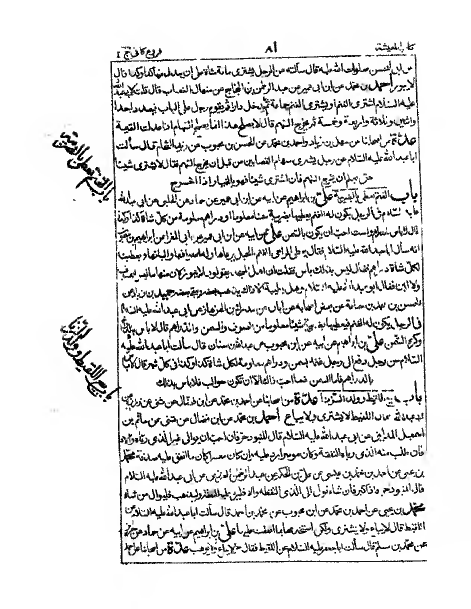 كتاب المعيشة ٨١ فروع كافي ج ٢
عن ابي الحسن صلوات الله عليه قال سألته عن الرجل يشترى مائة شاة على ان يبدل منها كذا وكذا قال
لا يجوز احمد بن محمد عن ابن ابي عمير عن عبد الرحمن بن الحجاج عن منهال القصاب قال قلت
عليه السلام اشترى الغنم او يشترى الغنم جماعة ثم يدخل دارا ثم يقوم رجل على الباب فيعد واحدا
واثنين وثلاثة واربعة وخمسة ثم يخرج السهم قال لا يصلح هذا انما يصلح السهام اذا عدلت القسمة
عدة من اصحابنا عن سهل بن زياد واحمد بن محمد عن الحسن بن محبوب عن زيد الشحام قال سألت
ابا عبد الله عليه السلام عن رجل يشترى سهام القصابين من قبل ان يخرج السهم فقال لا يشترى شيئا
حتى يعلم اين يخرج السهم فان اشترى شيئا فهو بالخيار اذا خرج
باب الغنم تعطى بالضريبة على بن ابراهيم عن ابيه عن ابن ابي عمير عن حماد عن الحلبي عن ابي عبد الله
عليه السلام في الرجل يكون له الغنم يعطيها بضريبة معلوما او دراهم معلومة من كل شاة كذا وكذا
قال لا باس بالدراهم ولست احب ان يكون بالسمن على بن ابراهيم عن ابيه عن ابن ابي عمير عن ابي المغرا عن ابراهيم بن
انه سأل ابا عبد الله عليه السلام فقال يعطى الراعي الغنم بالجبل يرعاها وله اصوافها والبانها ويعطينا
لكل شاة دراهم فقال ليس بذلك باس فقلت ان اهل المسجد يقولون لا يجوز لان منها ما ليس له صوف
ولا لبن فقال ابو عبد الله عليه السلام وهل يطيبه الا ذاك يذهب بعضه ويبقى بعضه حميد بن زياد عن
الحسن بن محمد بن سماعة عن بعض اصحابه عن ابان عن مدرك بن الهزهاز عن ابي عبد الله عليه السلام
في الرجل يكون له الغنم فيعطيها شيئا معلوما من الصوف والسمن والدراهم قال لا باس بالدراهم
وكره السمن على بن ابراهيم عن ابيه عن ابن محبوب عن عبد الله بن سنان قال سألت ابا عبد الله عليه
السلام عن رجل دفع الى رجل غنمه بسمن ودراهم معلومة لكل شاة كذا وكذا في كل شهر قال لا باس
بالدراهم فاما السمن فما احب ذلك الا ان تكون حوالب فلا باس بذلك
باب بيع اللقيط وولد الزنا عدة من اصحابنا عن احمد بن محمد عن ابن فضال عن مثنى عن زرارة
عن ابي عبد الله قال اللقيط لا يشترى ولا يباع احمد بن محمد عن ابن فضال عن مثنى عن حاتم بن
اسمعيل المدايني عن ابي عبد الله عليه السلام قال المنبوذ حر فان احب ان يوالى غير الذى رباه والاه
فان طلب منه الذى رباه النفقة وكان موسرا رد عليه وان كان معسرا كان ما انفق عليه صدقة محمد
بن يحيى عن احمد بن محمد بن عيسى عن على بن الحكم عن عبد الرحمن العرزمى عن ابي عبد الله عليه السلام
قال المنبوذ حر فاذا كبر فان شاء تولى الى الذى التقطه والا فليرد عليه النفقة وليذهب فليوال من شاء
محمد بن يحيى عن احمد بن محمد عن ابن محبوب عن محمد بن احمد قال سألت ابا عبد الله عليه السلام عن
اللقيطة قال لا تباع ولا تشترى ولكن استخدمها بما انفقت عليها على بن ابراهيم عن ابيه عن حماد عن حريز
عن محمد بن مسلم قال سألت ابا جعفر عليه السلام عن اللقيط فقال حر لا يباع ولا يوهب عدة من اصحابنا عن احمد
باب الغنم تعطى بالضريبة
باب بيع اللقيط وولد الزنا